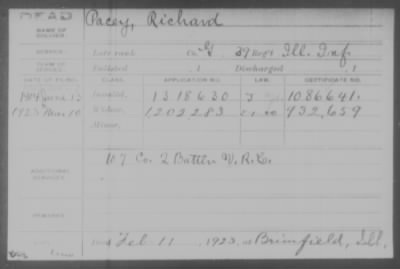 DEAD
Pacey, Richard
NAME OF SOLDIER:
SERVICE:
Late rank Co. G, 39 Reg't Ill. Inf.
TERM OF SERVICE:
Enlisted 1 Discharged 1
DATE OF FILING. CLASS. APPLICATION NO. LAW. CERTIFICATE NO.
1904 June 13 Invalid, 1318630 J 1086641.
1923 Mar. 10 Widow, 1202283 932,659
Minor,
107 Co. 2 Batt'n V.R.C.
ADDITIONAL SERVICES:
REMARKS:
Died Feb 11, 1923, at Brimfield, Ill.